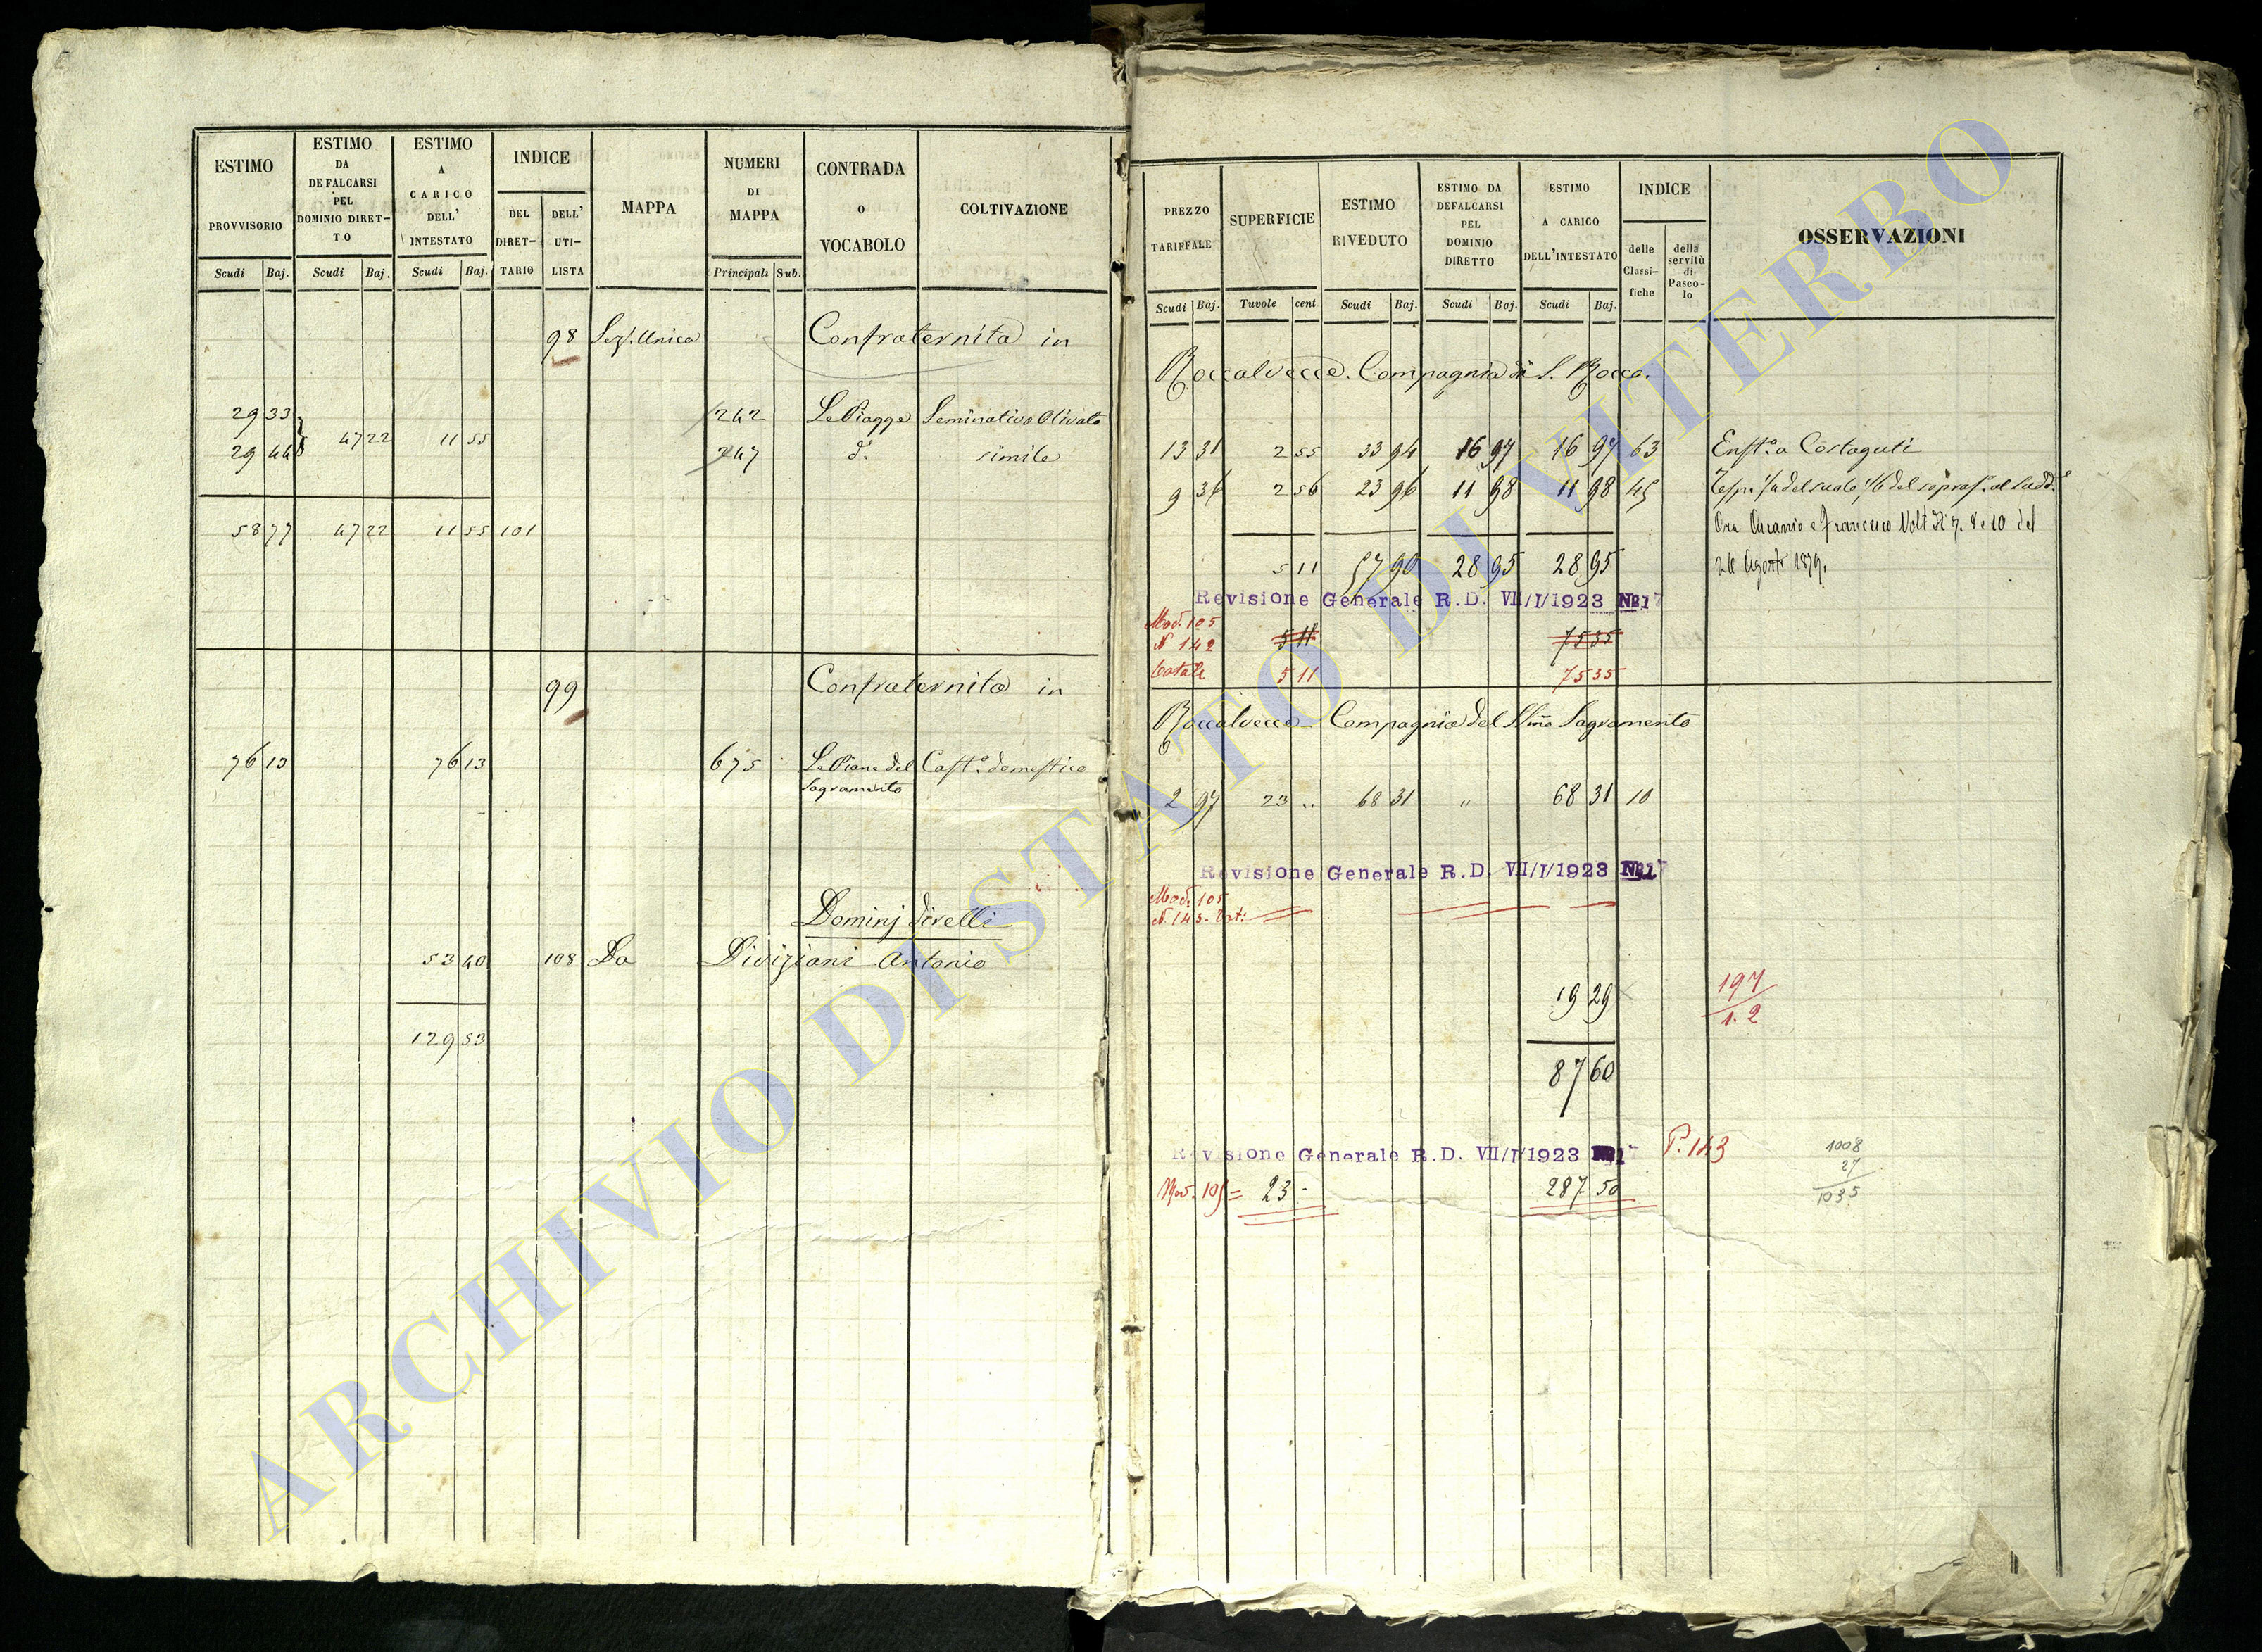 ESTIMO
PROVVISORIO
Scudi Baj.
ESTIMO
DA
DEFALCARSI
PEL
DOMINIO DIRET-
TO
Scudi Baj.
ESTIMO
A
CARICO
DELL'
INTESTATO
Scudi Baj.
INDICE
DEL
DIRET-
TARIO
DELL'
UTI-
LISTA
MAPPA
NUMERI
DI
MAPPA
Principali Sub.
CONTRADA
o
VOCABOLO
COLTIVAZIONE
98 Sez. Unica Confraternita in
29 33 242 Le Piagge Seminativo Olivato
47 22 11 55
29 44 247 d.° simile
58 77 47 22 11 55 101
99 Confraternita in
76 13 76 13 675 Le Piane del Cast.° domestico
Sagramento
Dominj divelti
53 40 108 Da Diviziani Antonio
129 53
PREZZO
TARIFFALE
Scudi Baj.
SUPERFICIE
Tavole cent
ESTIMO
RIVEDUTO
Scudi Baj.
ESTIMO DA
DEFALCARSI
PEL
DOMINIO
DIRETTO
Scudi Baj.
ESTIMO
A CARICO
DELL'INTESTATO
Scudi Baj.
INDICE
delle
Classi-
fiche
della
servitù
di
Pasco-
lo
OSSERVAZIONI
Roccalvecce. Compagnia di S. Rocco.
13 31 2 55 33 94 16 97 16 97 63 Enft.° a Costaguti
9 36 2 56 23 96 11 98 11 98 45 1/4 del suolo 1/6 del
Ora e Francesco Volt. 8 e 10 del
5 11 57 90 28 95 28 95 26 Agosto 1879.
Revisione Generale R.D. VII/I/1923 No 17
Mod. 105
N 142 5 11 75 35
totale 5 11 75 35
Roccalvecce - Compagnia del SSmo Sagramento
2 97 23 .. 68 31 " 68 31 10
Revisione Generale R.D. VII/I/1923 No 17
Mod. 105
N. 143
19 29 197
1. 2
87 60
Revisione Generale R.D. VII/I/1923 No 17 P. 143
Mod. 105 = 23 - 287 50
1008
27
1035
ARCHIVIO DI STATO DI VITERBO